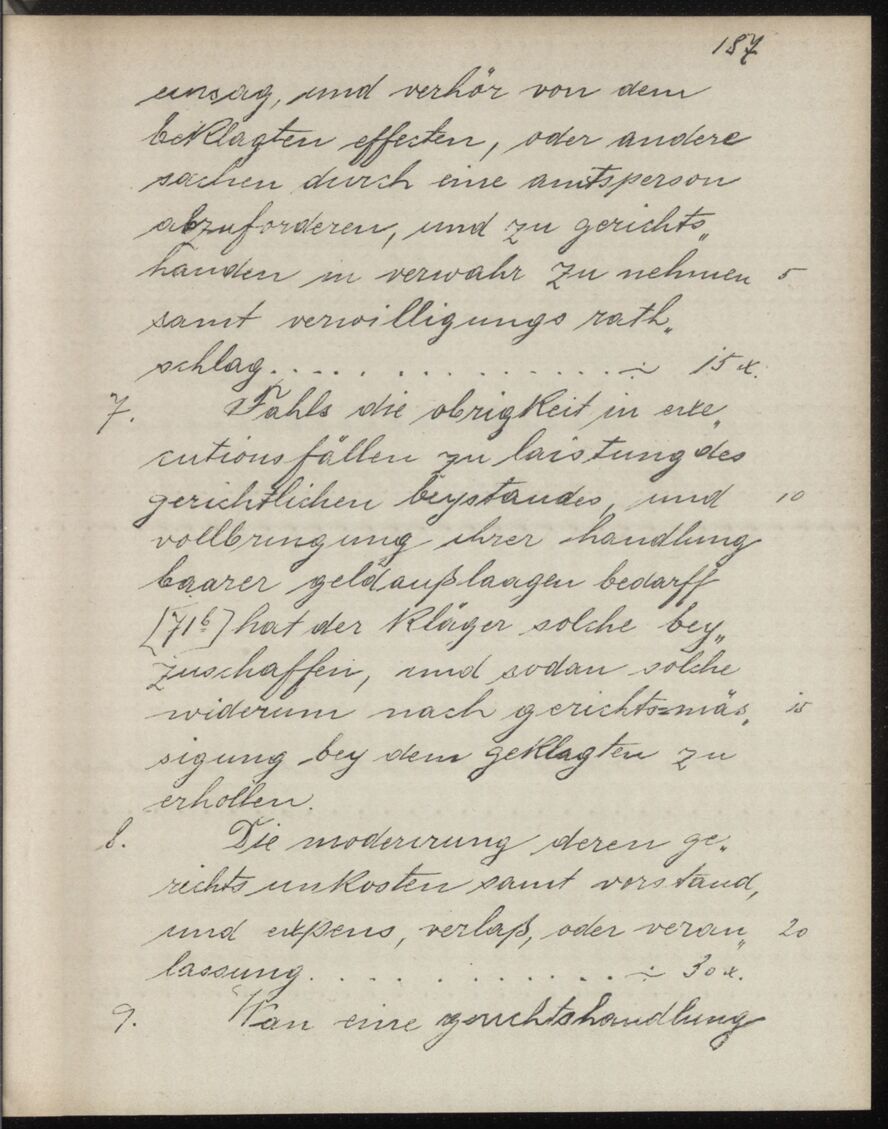 187
einsag, und verhör von dem
beklagten effecten, oder andere
sachen durch eine amtsperson
abzuforderen, und zu gerichts„
handen in verwahr zu nehmen 5
samt verwilligungs rath„
schlag. . . . . . . . . . . . . . . ÷ 15 x.
7. Fahls die obrigkeit in exe„
cutionsfällen zu laistung des
gerichtlichen beystandes, und 10
vollbringung ihrer handlung
baarer geldaußlaagen bedarff
[71b] hat der kläger solche bey„
zuschaffen, und sodan solche
widerum nach gerichts=mäs„ 15
sigung bey dem geklagten zu
erhollen.
8. Die moderirung deren ge„
richtsunkosten samt vorstand,
und expens, verlaß, oder veran„ 20
lassung. . . . . . . . . . . ÷ 30 x.
9. Wan eine gerichtshandlung